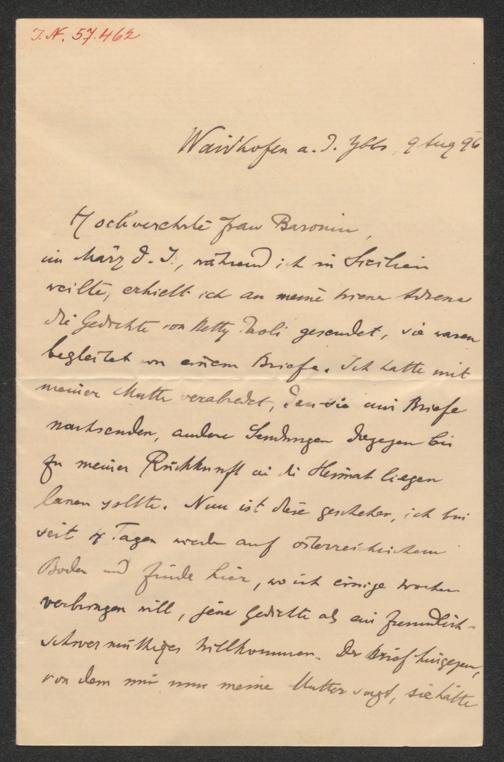 I.N. 57.462
Waidhofen a. d. Ybbs, 9 Aug 96
Hochverehrte Frau Baronin,
im März d. J., während ich in Sicilien
weilte, erhielt ich an meine Wiener Adresse
die Gedichte von Betty Paoli gesendet, sie waren
begleitet von einem Briefe. Ich hatte mit
meiner Mutter verabredet, dass sie mir Briefe
nachsenden, andere Sendungen dagegen bis
zu meiner Rückkunft in die Heimat liegen
lassen sollte. Nun ist diese geschehen, ich bin
seit 4 Tagen wieder auf österreichischem
Boden und finde hier, wo ich einige Wochen
verbringen will, jene Gedichte als ein freundlich-
schwermüthiges Willkommen. Der Brief hingegen,
von dem mir nun meine Mutter sagt, sie hätte